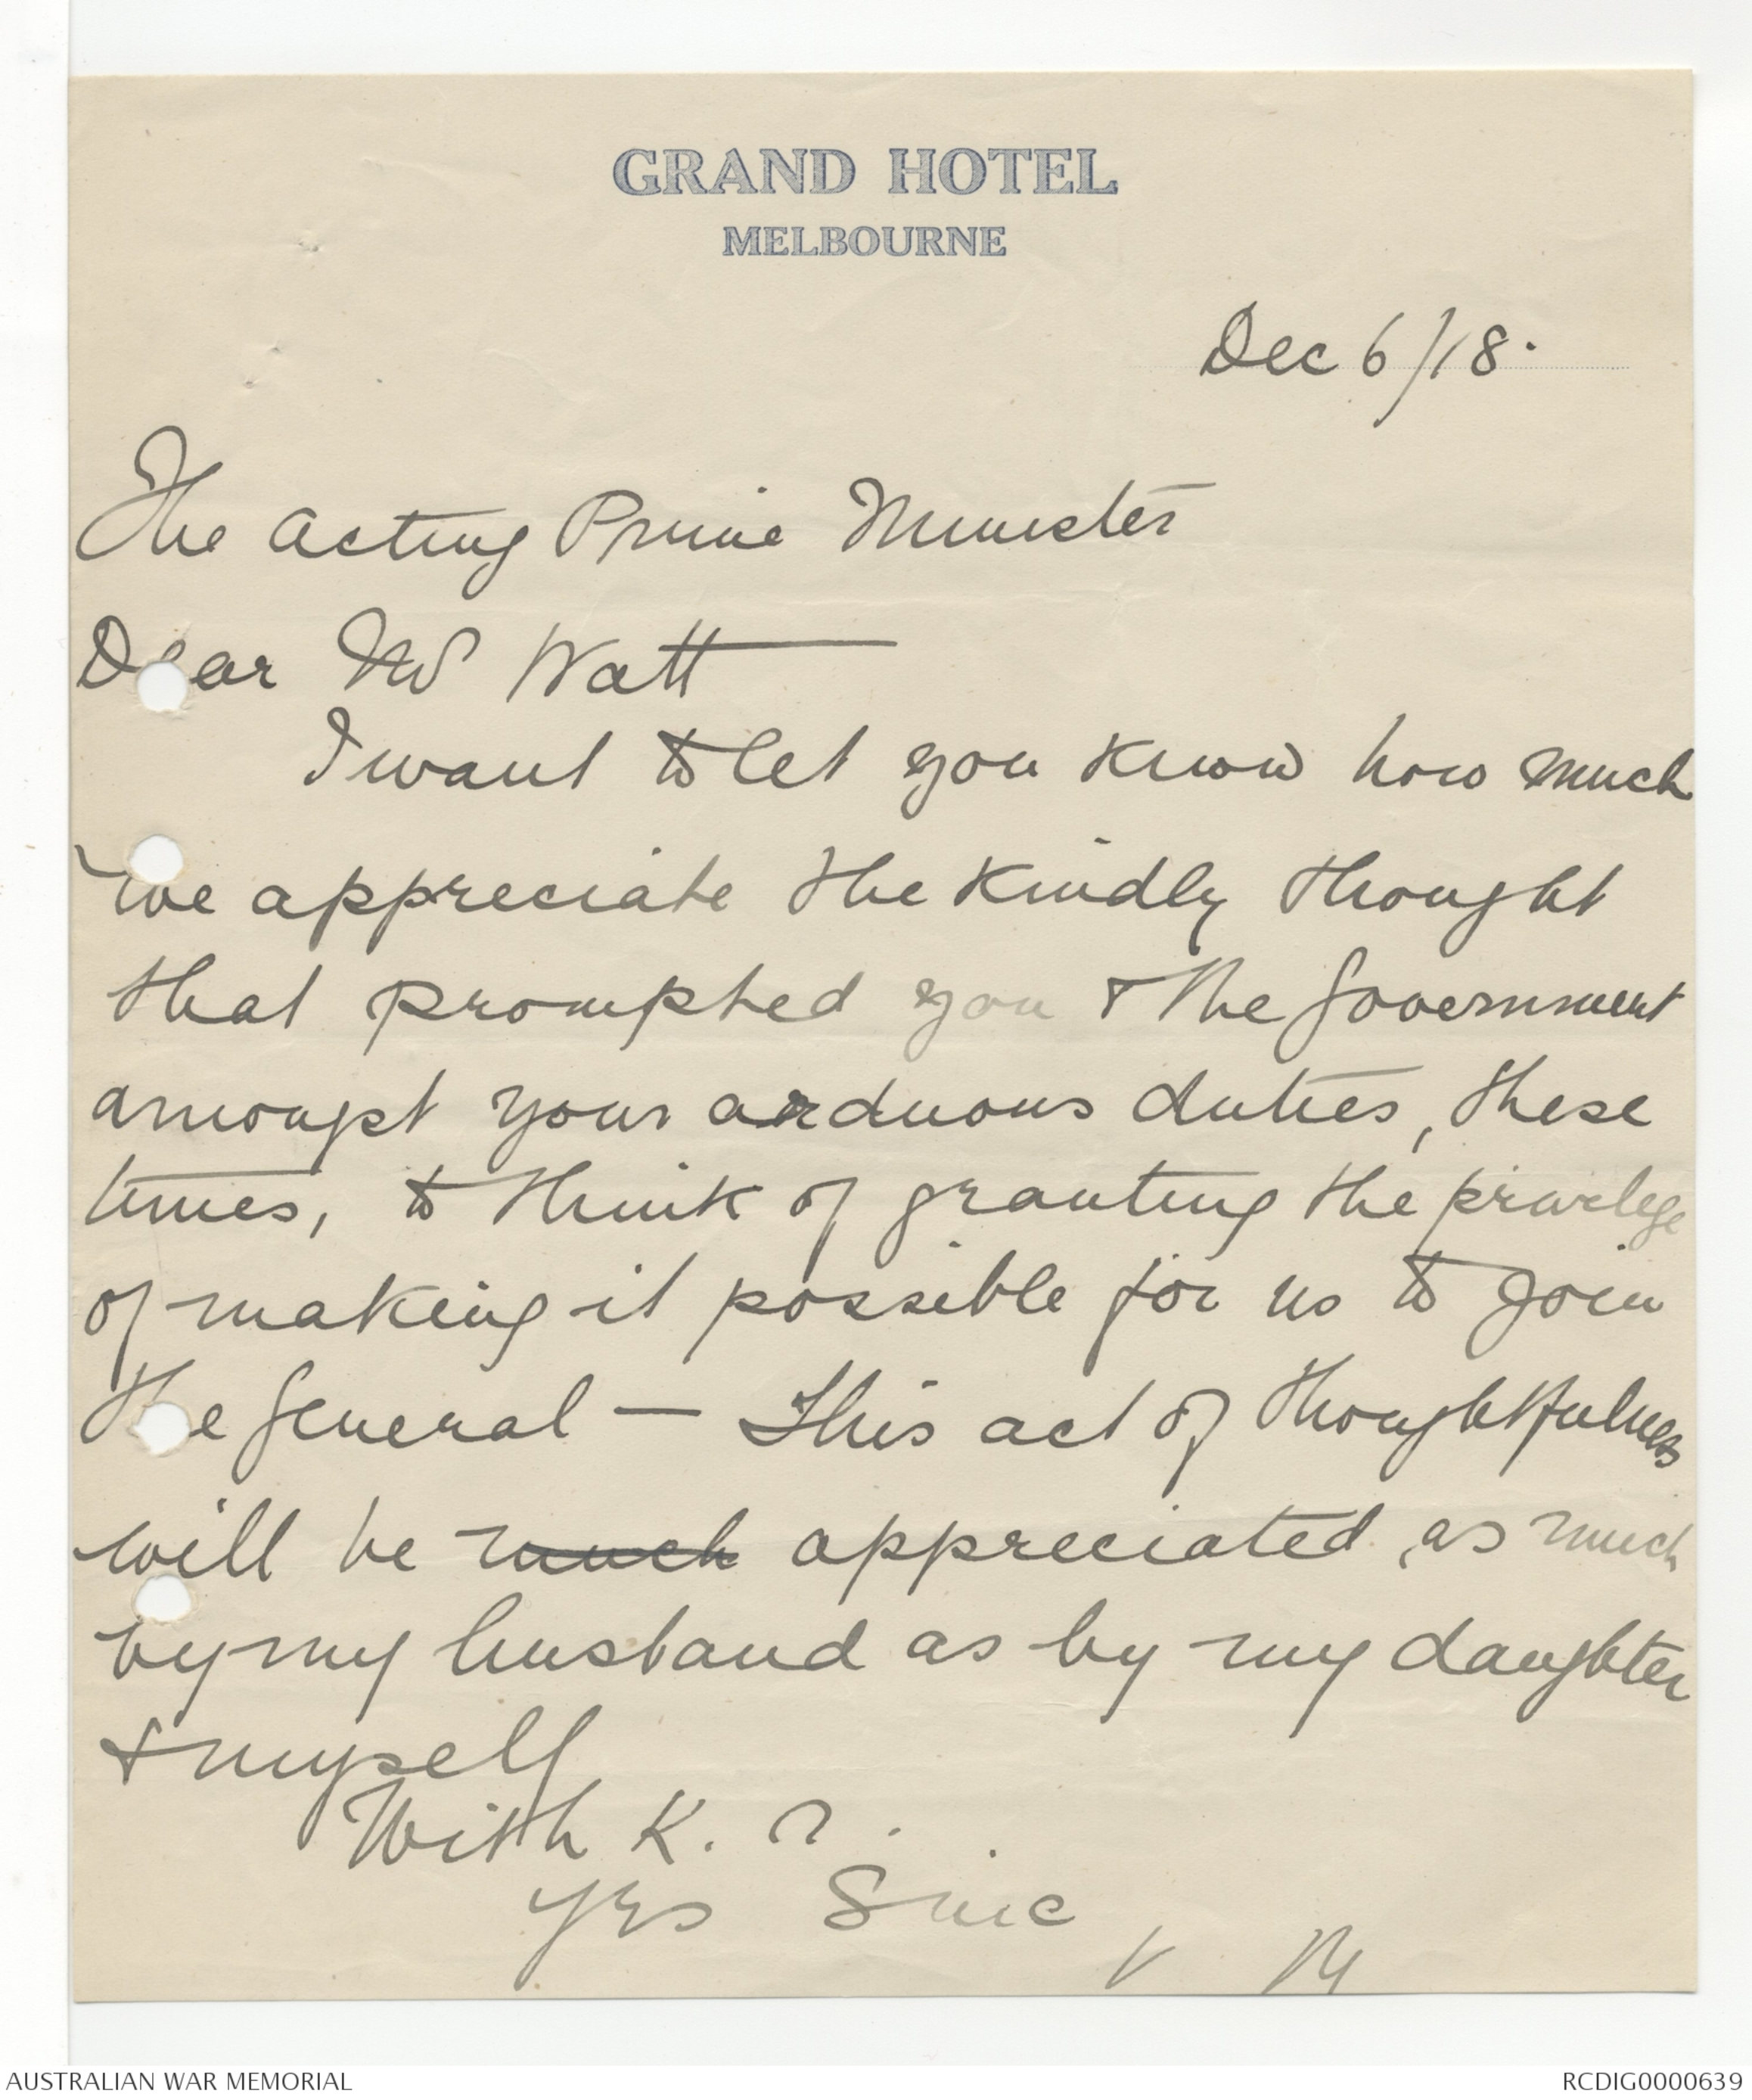 GRAND HOTEL
MELBOURNE
Dec 6/18.
The Acting Prime Minister
Dear Mr Watt
I want to let you know how much
we appreciate the kindly thought
that prompted you & the Government
amongst your arduous duties, these
times, to think of granting the privilege
of making it possible for us to join
the General — This act of thoughtfulness
will be much appreciated, as much
by my husband as by my daughter
& myself
With K. R.
Yrs Sinc
V M
AUSTRALIAN WAR MEMORIAL
RCDIG0000639